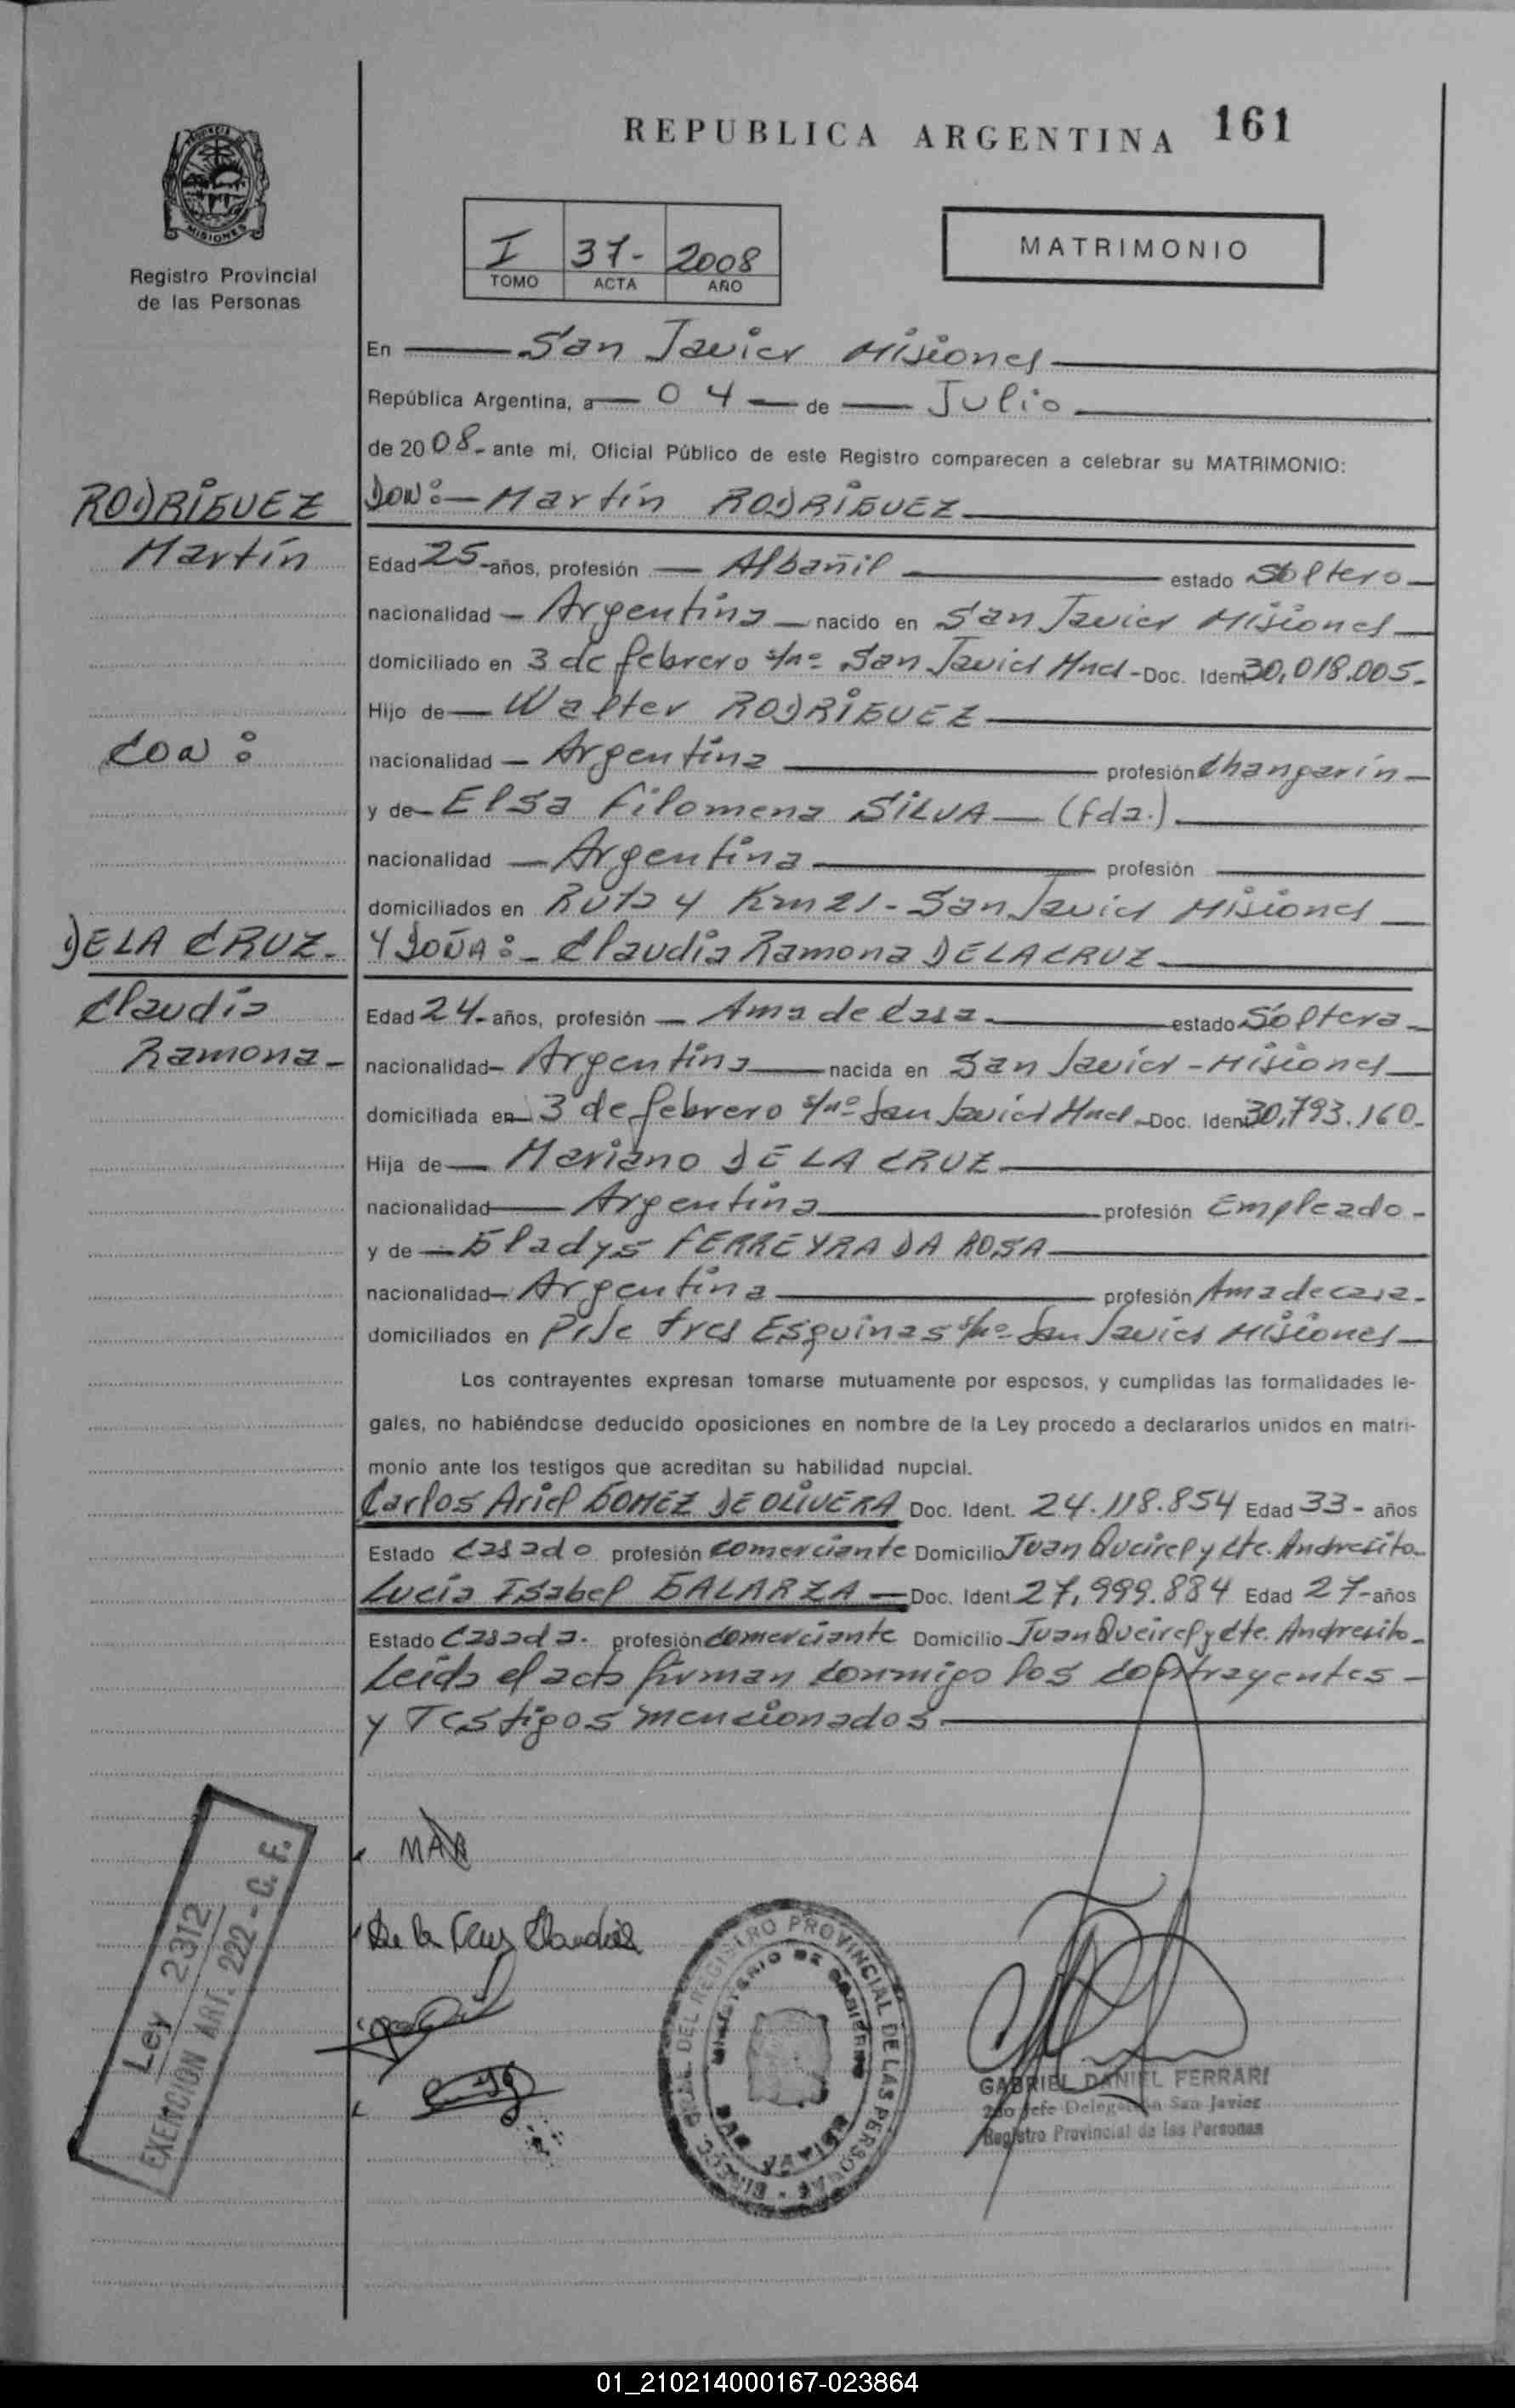 REPUBLICA ARGENTINA 161
MISIONES
Registro Provincial
de las Personas
I 37- 2008
TOMO ACTA AÑO
MATRIMONIO
En San Javier Misiones
República Argentina, a 04 de Julio
de 2008- ante mi, Oficial Público de este Registro comparecen a celebrar su MATRIMONIO:
RODRÍGUEZ
Martín
Con:
DE LA CRUZ.
Claudia
Ramona-
DON:- Martín RODRÍGUEZ
Edad 25-años, profesión Albañil estado Soltero
nacionalidad Argentina nacido en San Javier Misiones
domiciliado en 3 de febrero s/nº San Javier Mnes-Doc. Ident 30,018.005.
Hijo de Walter RODRÍGUEZ
nacionalidad Argentina profesión Changarín
y de Elsa Filomena SILVA (fda.)
nacionalidad Argentina profesión
domiciliados en Ruta 4 Km 21-San Javier Misiones
Y DOÑA:- Claudia Ramona DE LA CRUZ
Edad 24-años, profesión Ama de Casa. estado Soltera
nacionalidad Argentina nacida en San Javier-Misiones
domiciliada en 3 de febrero s/nº San Javier Mnes-Doc. Ident 30,793.160.
Hija de Mariano DE LA CRUZ
nacionalidad Argentina profesión Empleado-
y de Gladys FERREYRA DA ROSA
nacionalidad Argentina profesión Ama de casa.
domiciliados en Pje tres Esquinas s/nº San Javier Misiones
Los contrayentes expresan tomarse mutuamente por esposos, y cumplidas las formalidades le-
gales, no habiéndose deducido oposiciones en nombre de la Ley procedo a declararlos unidos en matri-
monio ante los testigos que acreditan su habilidad nupcial.
Carlos Ariel GOMEZ DE OLIVERA Doc. Ident. 24.118.854 Edad 33- años
Estado Casado profesión comerciante Domicilio Juan Queirel y Cte. Andresito-
Lucía Isabel GALARZA Doc. Ident. 27,999.884 Edad 27-años
Estado Casada. profesión comerciante Domicilio Juan Queirel y Cte. Andresito-
Leída el acta firman conmigo los contrayentes
y Testigos mencionados.
De la Cruz Claudia
Ley 2312
EXENCION ART. 222 - C. F.
DIRECC. GRAL. DEL REGISTRO PROVINCIAL DE LAS PERSONAS
MINISTERIO DE GOBIERNO
SAN JAVIER
GABRIEL DANIEL FERRARI
2do Jefe Delegación San Javier
Registro Provincial de las Personas
01_210214000167-023864